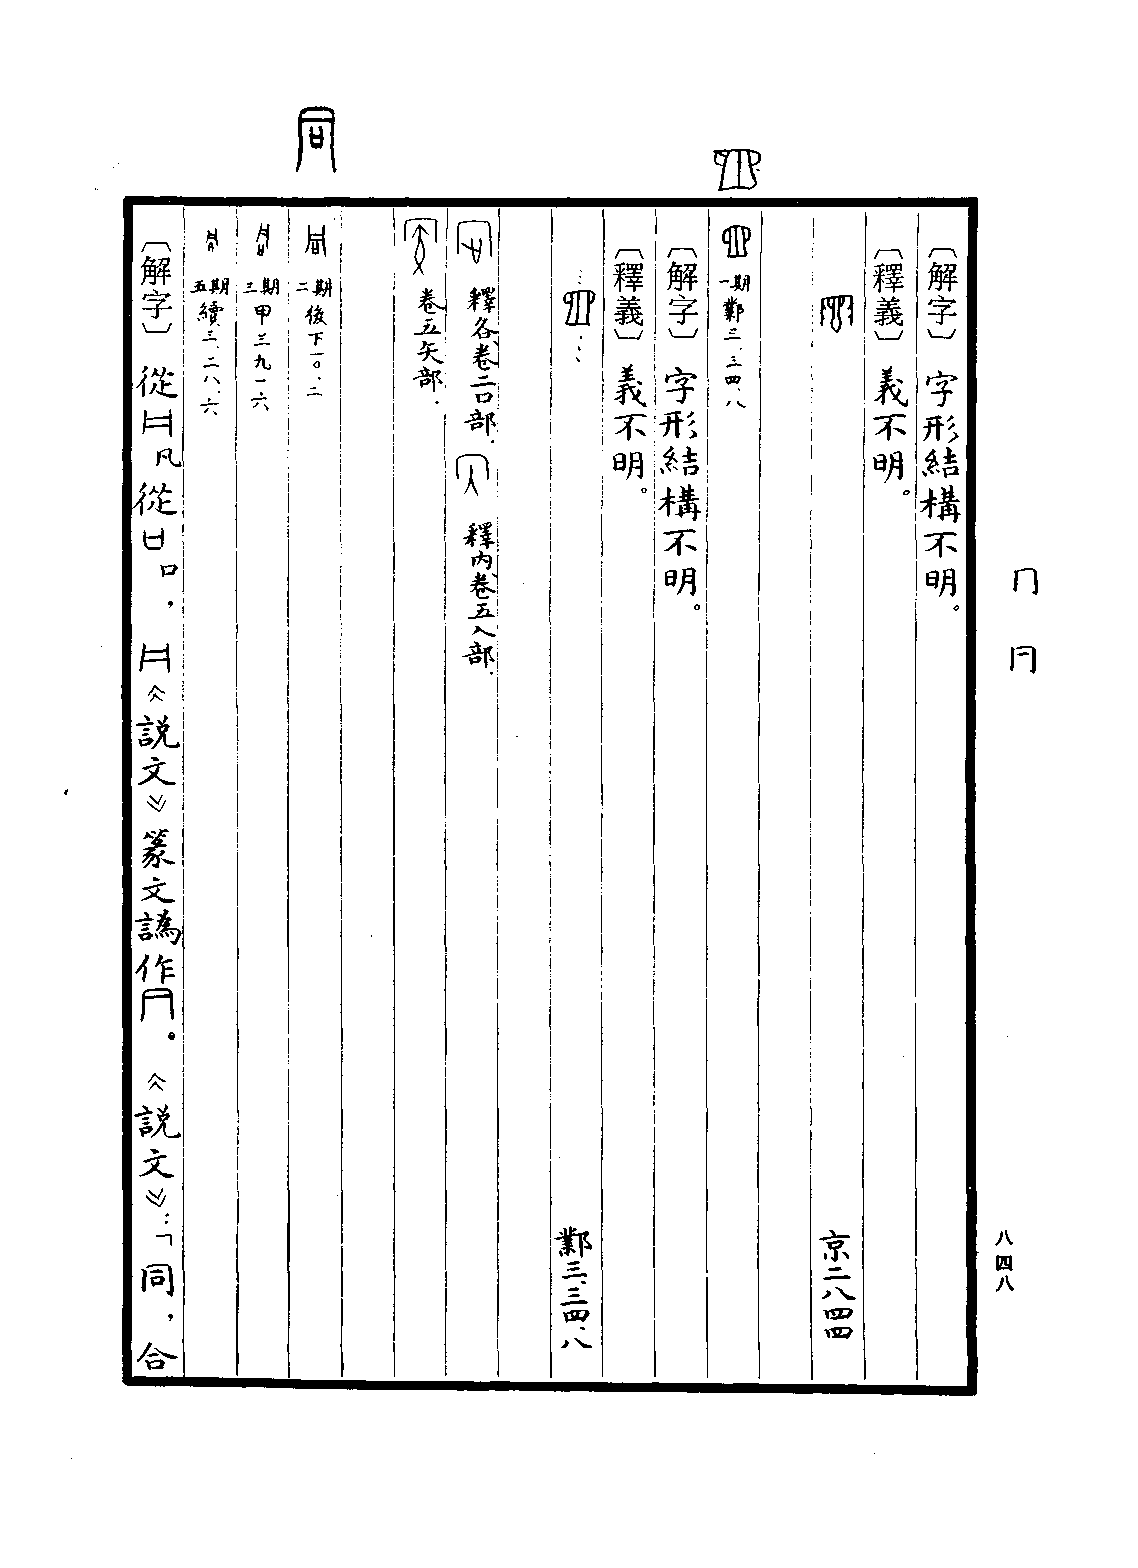 冂 冃
八四八
〔解字〕字形結構不明。
〔釋義〕義不明。
京二八四四
一期 鄴三、三四、八
〔解字〕字形結構不明。
〔釋義〕義不明。
…… 鄴三、三四、八
釋各、卷二口部. 釋内、卷五入部.
卷五矢部.
同
二期 後下一〇、二
三期 甲三九一六
五期 續三、二八、六
〔解字〕從凡從口，《說文》篆文譌作。《說文》：「同，合